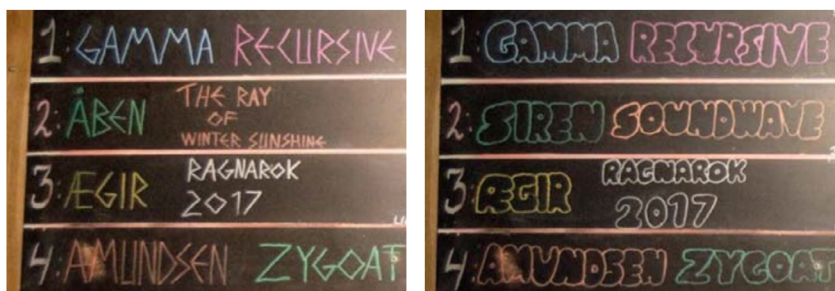 1: GAMMA RECURSIVE
2: ÅBEN THE RAY
OF
WINTER SUNSHINE
3: ÆGIR RAGNAROK
2017
4: AMUNDSEN ZYGOAT
1: GAMMA RECURSIVE
2: SIREN SOUNDWAVE
3: ÆGIR RAGNAROK
2017
4: AMUNDSEN ZYGOAT